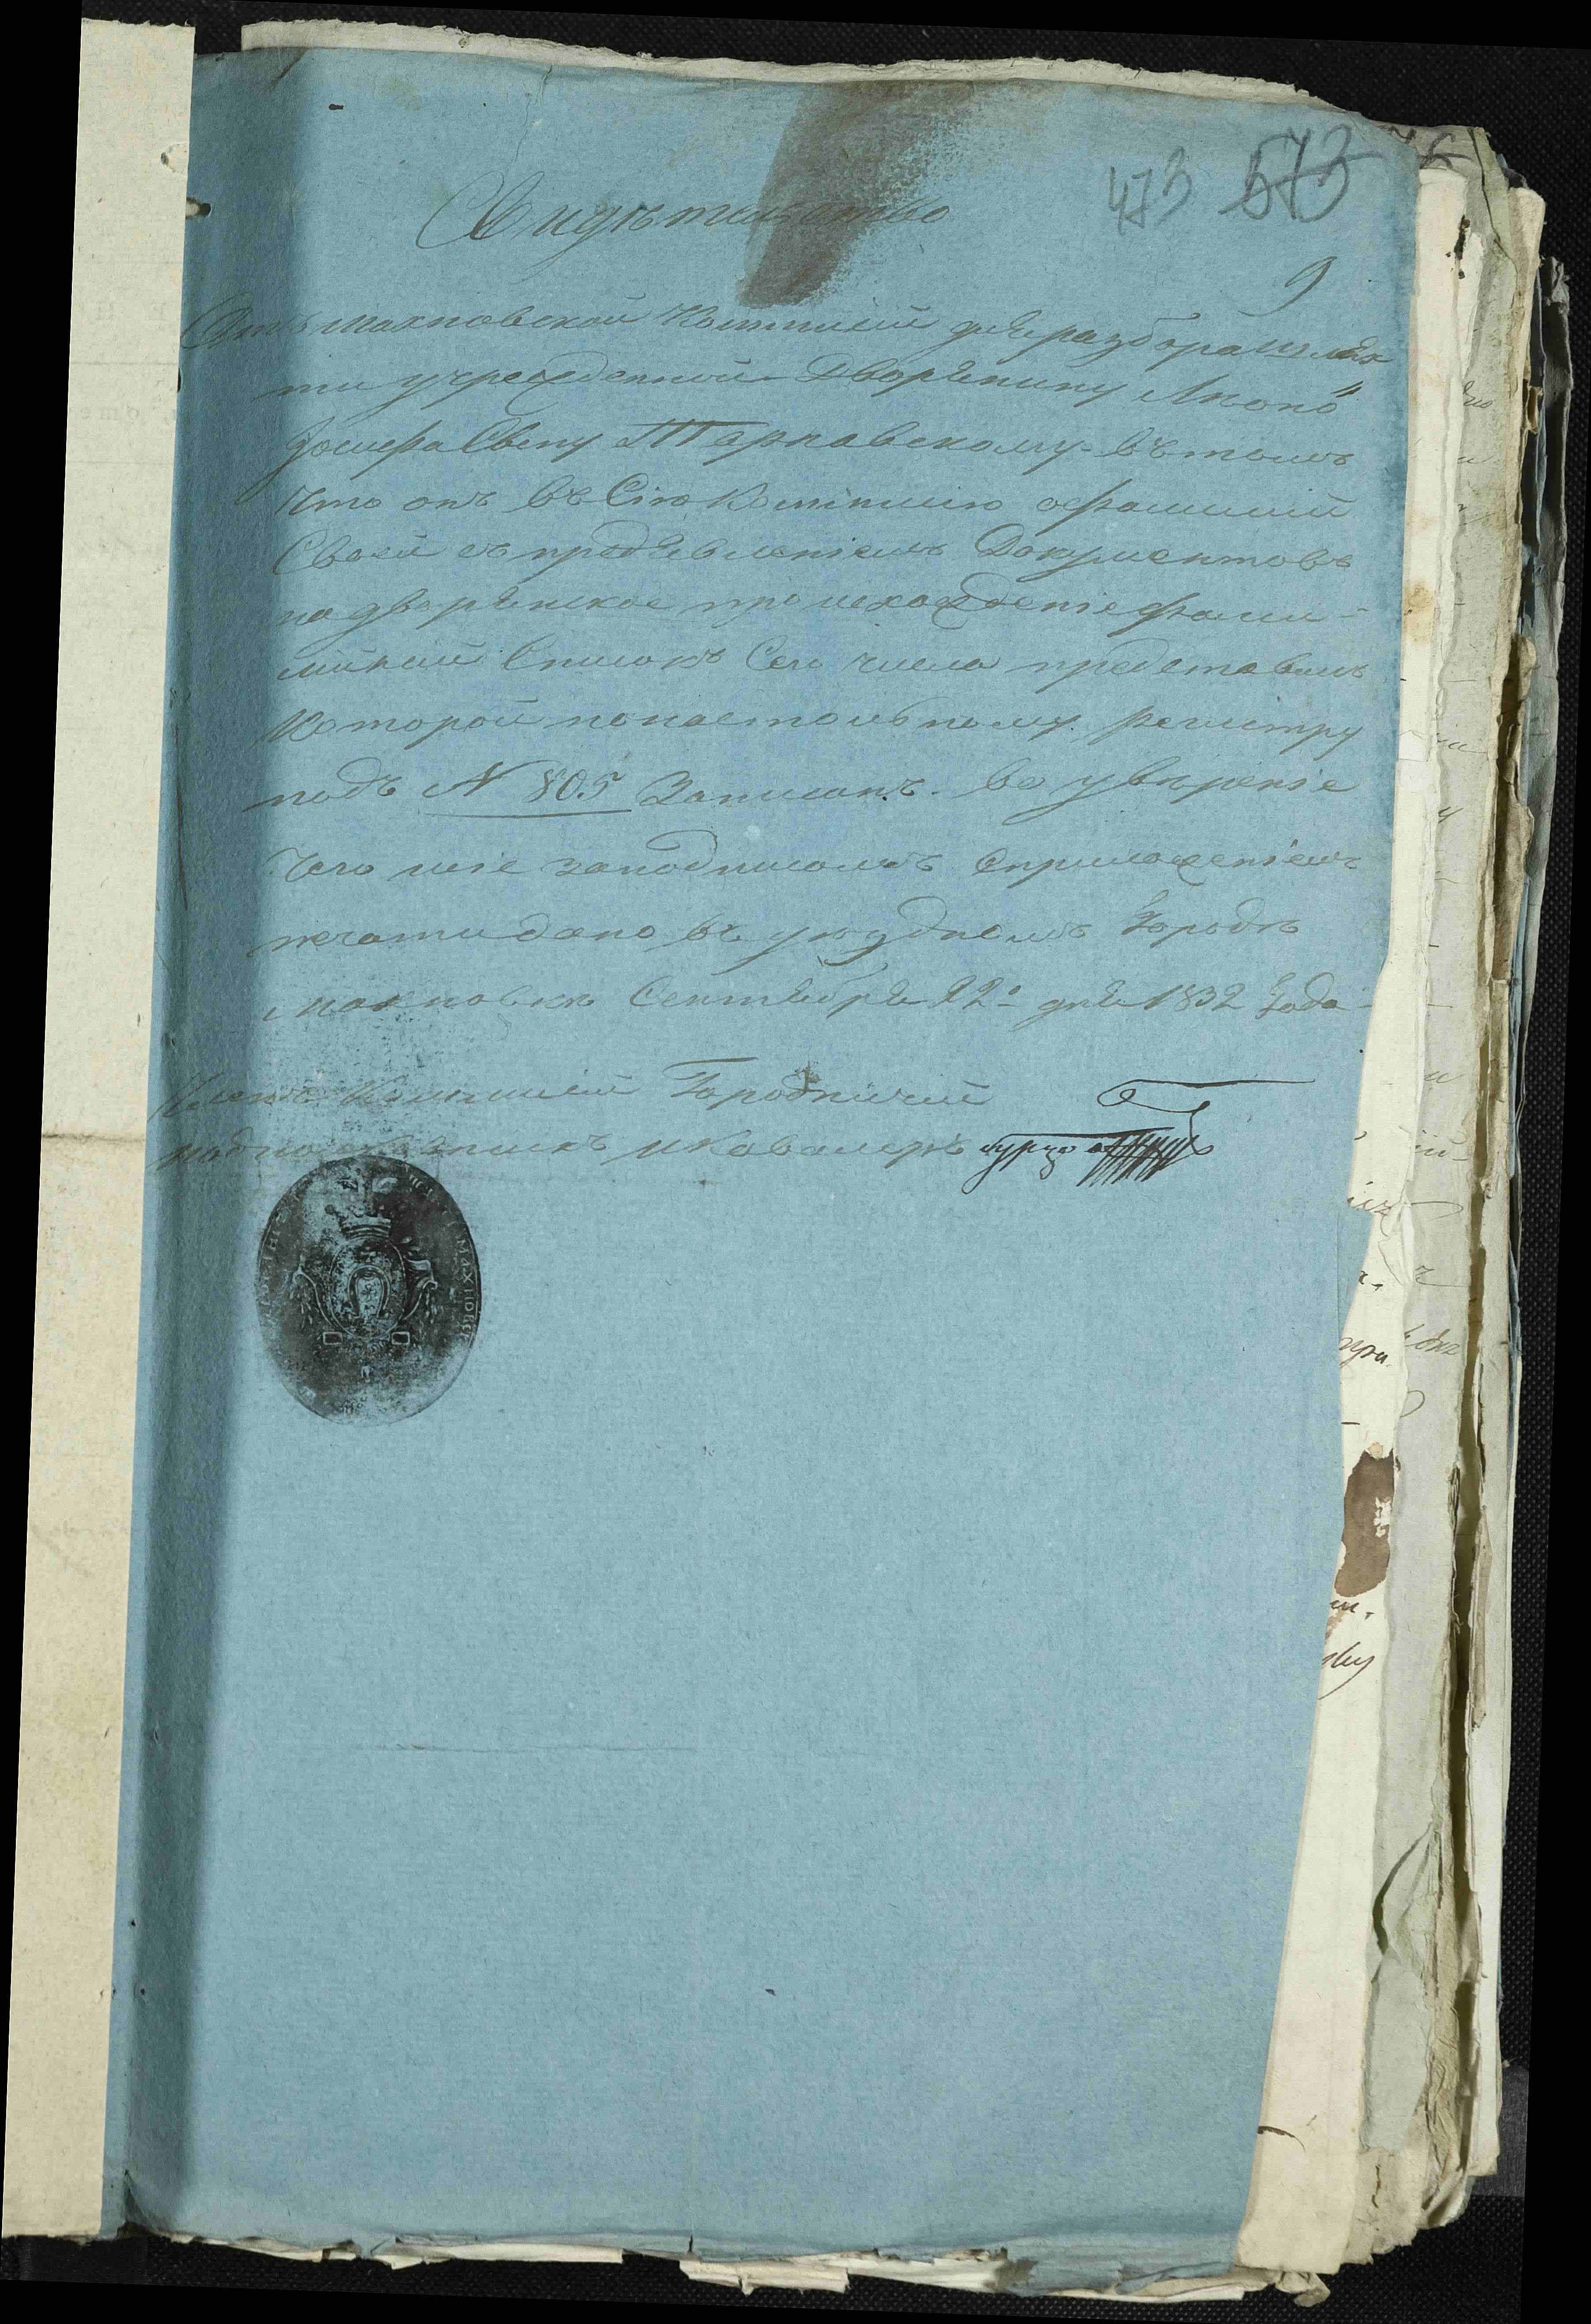 473 573
Свидѣтельство
9
Отъ Махновской Коммиссіи для разбора шлях
ти учрежденной Дворянину
Іосифа Сыну Тарнавскому въ томъ
Что онъ въ Сію Коммиссию о фамиліи
Своей съ предъявленіемъ Документовъ
на дворянское происхожденіе фами-
лійный Списокъ Сего числа представилъ
Которой по настольному регистру
подъ N 805 Записанъ. Во увѣреніе
Чего сіе за подписомъ Сприложеніемъ
печати дано въ уѣздномъ Городѣ
Махновкѣ Сентября 22º дня 1832 Года
Членъ Коммиссіи Городничій
и Кавалеръ
МАХНОВС